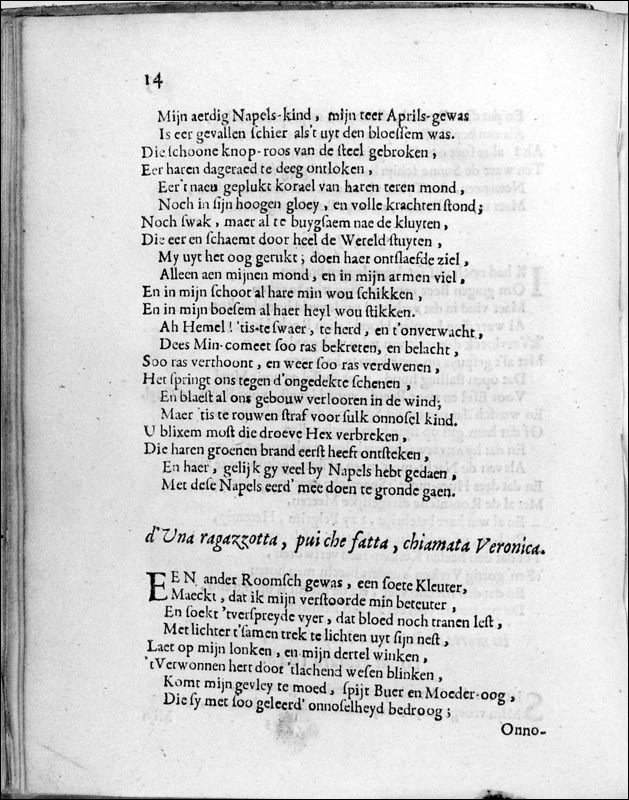 14
Mijn aerdig Napels-kind, mijn teer Aprils-gewas
Is eer gevallen schier als't uyt den bloessem was.
Die schoone knop-roos van de steel gebroken,
Eer haren dageraed te deeg ontloken,
Eer't naeu geplukt korael van haren teren mond,
Noch in sijn hoogen gloey, en volle krachten stond;
Noch swak, maer al te buygsaem nae de kluyten,
Die eer en schaemt door heel de Wereld stuyten,
My uyt het oog gerukt; doen haer ontslaefde ziel,
Alleen aen mijnen mond, en in mijn armen viel,
En in mijn schoot al hare min wou schikken,
En in mijn boesem al haer heyl wou stikken.
Ah Hemel! 'tis-te swaer, te herd, en t'onverwacht,
Dees Min-comeet soo ras bekreten, en belacht,
Soo ras verthoont, en weer soo ras verdwenen,
Het springt ons tegen d'ongedekte schenen,
En blaest al ons gebouw verlooren in de wind;
Maer 'tis te rouwen straf voor sulk onnosel kind.
U blixem most die droeve Hex verbreken,
Die haren groenen brand eerst heeft ontsteken,
En haer, gelijk gy veel by Napels hebt gedaen,
Met dese Napels eerd' mee doen te gronde gaen.
d'Una ragazzotta, pui che fatta, chiamata Veronica.
EEN ander Roomsch gewas, een soete Kleuter,
Maeckt, dat ik mijn verstoorde min beteuter,
En soekt 'tverspreyde vyer, dat bloed noch tranen lest,
Met lichter t'samen trek te lichten uyt sijn nest,
Laet op mijn lonken, en mijn dertel winken,
'tVerwonnen hert door 'tlachend wesen blinken,
Komt mijn gevley te moed, spijt Buer en Moeder-oog,
Die sy met soo geleerd' onnoselheyd bedroog;
Onno-